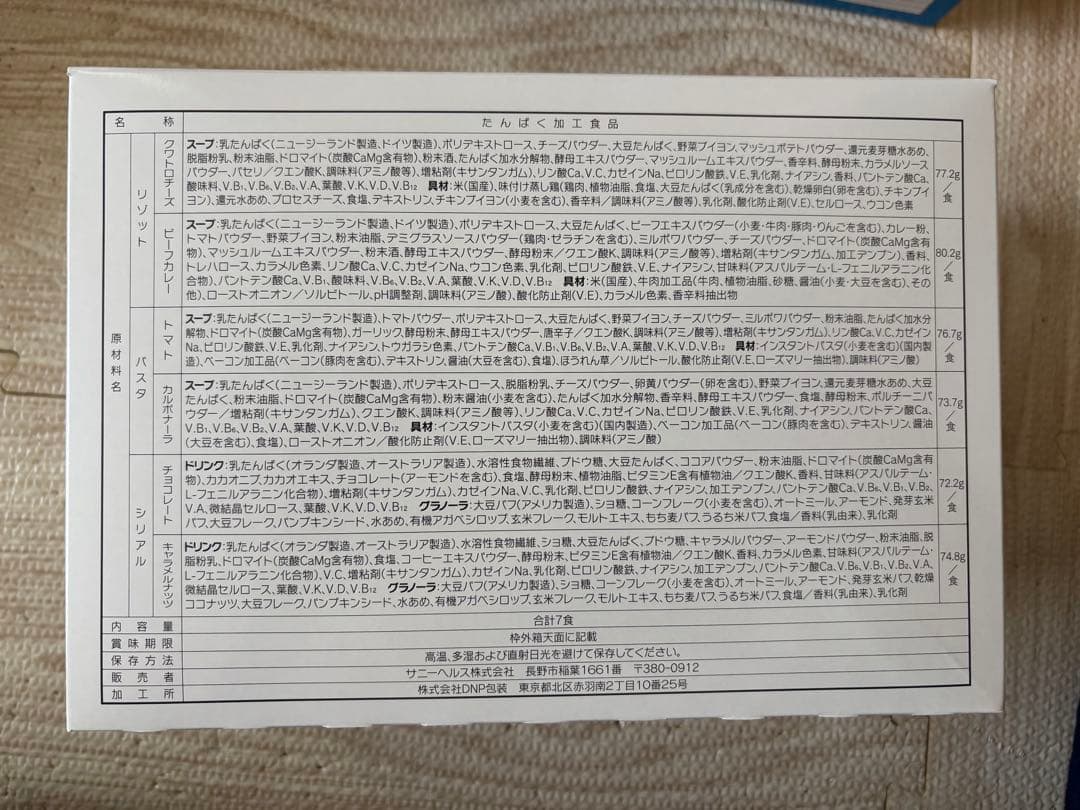 名称 たんぱく加工食品
原材料名
リゾット
クワトロチーズ
スープ:乳たんぱく(ニュージーランド製造、ドイツ製造)、ポリデキストロース、チーズパウダー、大豆たんぱく、野菜ブイヨン、マッシュポテトパウダー、還元麦芽糖水あめ、
脱脂粉乳、粉末油脂、ドロマイト(炭酸CaMg含有物)、粉末酒、たんぱく加水分解物、酵母エキスパウダー、マッシュルームエキスパウダー、香辛料、酵母粉末、カラメルソース
パウダー、パセリ/クエン酸K、調味料(アミノ酸等)、増粘剤(キサンタンガム)、リン酸Ca、V.C、カゼインNa、ピロリン酸鉄、V.E、乳化剤、ナイアシン、香料、パントテン酸Ca、
酸味料、V.B1、V.B6、V.B2、V.A、葉酸、V.K、V.D、V.B12 具材:米(国産)、味付け蒸し鶏(鶏肉、植物油脂、食塩、大豆たんぱく(乳成分を含む)、乾燥卵白(卵を含む)、チキンブイ
ヨン)、還元水あめ、プロセスチーズ、食塩、デキストリン、チキンブイヨン(小麦を含む)、香辛料/調味料(アミノ酸等)、乳化剤、酸化防止剤(V.E)、セルロース、ウコン色素
77.2g/食
ビーフカレー
スープ:乳たんぱく(ニュージーランド製造、ドイツ製造)、ポリデキストロース、大豆たんぱく、ビーフエキスパウダー(小麦・牛肉・豚肉・りんごを含む)、カレー粉、
トマトパウダー、野菜ブイヨン、粉末油脂、デミグラスソースパウダー(鶏肉・ゼラチンを含む)、ミルポワパウダー、チーズパウダー、ドロマイト(炭酸CaMg含有
物)、マッシュルームエキスパウダー、粉末酒、酵母エキスパウダー、酵母粉末/クエン酸K、調味料(アミノ酸等)、増粘剤(キサンタンガム、加工デンプン)、香料、
トレハロース、カラメル色素、リン酸Ca、V.C、カゼインNa、ウコン色素、乳化剤、ピロリン酸鉄、V.E、ナイアシン、甘味料(アスパルテーム・L-フェニルアラニン化
合物)、パントテン酸Ca、V.B1、酸味料、V.B6、V.B2、V.A、葉酸、V.K、V.D、V.B12 具材:米(国産)、牛肉加工品(牛肉、植物油脂、砂糖、醤油(小麦・大豆を含む)、その
他)、ローストオニオン/ソルビトール、pH調整剤、調味料(アミノ酸)、酸化防止剤(V.E)、カラメル色素、香辛料抽出物
80.2g/食
パスタ
トマト
スープ:乳たんぱく(ニュージーランド製造)、トマトパウダー、ポリデキストロース、大豆たんぱく、野菜ブイヨン、チーズパウダー、ミルポワパウダー、粉末油脂、たんぱく加水分
解物、ドロマイト(炭酸CaMg含有物)、ガーリック、酵母粉末、酵母エキスパウダー、唐辛子/クエン酸K、調味料(アミノ酸等)、増粘剤(キサンタンガム)、リン酸Ca、V.C、カゼイン
Na、ピロリン酸鉄、V.E、乳化剤、ナイアシン、トウガラシ色素、パントテン酸Ca、V.B1、V.B6、V.B2、V.A、葉酸、V.K、V.D、V.B12 具材:インスタントパスタ(小麦を含む)(国内製
造)、ベーコン加工品(ベーコン(豚肉を含む)、デキストリン、醤油(大豆を含む)、食塩)、ほうれん草/ソルビトール、酸化防止剤(V.E、ローズマリー抽出物)、調味料(アミノ酸)
76.7g/食
カルボナーラ
スープ:乳たんぱく(ニュージーランド製造)、ポリデキストロース、脱脂粉乳、チーズパウダー、卵黄パウダー(卵を含む)、野菜ブイヨン、還元麦芽糖水あめ、大豆
たんぱく、粉末油脂、ドロマイト(炭酸CaMg含有物)、粉末醤油(小麦を含む)、たんぱく加水分解物、香辛料、酵母エキスパウダー、食塩、酵母粉末、ポルチーニパ
ウダー/増粘剤(キサンタンガム)、クエン酸K、調味料(アミノ酸等)、リン酸Ca、V.C、カゼインNa、ピロリン酸鉄、V.E、乳化剤、ナイアシン、パントテン酸Ca、
V.B1、V.B6、V.B2、V.A、葉酸、V.K、V.D、V.B12 具材:インスタントパスタ(小麦を含む)(国内製造)、ベーコン加工品(ベーコン(豚肉を含む)、デキストリン、醤油
(大豆を含む)、食塩)、ローストオニオン/酸化防止剤(V.E、ローズマリー抽出物)、調味料(アミノ酸)
73.7g/食
シリアル
チョコレート
ドリンク:乳たんぱく(オランダ製造、オーストラリア製造)、水溶性食物繊維、ブドウ糖、大豆たんぱく、ココアパウダー、粉末油脂、ドロマイト(炭酸CaMg含有
物)、カカオニブ、カカオエキス、チョコレート(アーモンドを含む)、食塩、酵母粉末、植物油脂、ビタミンE含有植物油/クエン酸K、香料、甘味料(アスパルテーム・
L-フェニルアラニン化合物)、増粘剤(キサンタンガム)、カゼインNa、V.C、乳化剤、ピロリン酸鉄、ナイアシン、加工デンプン、パントテン酸Ca、V.B6、V.B1、V.B2、
V.A、微結晶セルロース、葉酸、V.K、V.D、V.B12 グラノーラ:大豆パフ(アメリカ製造)、ショ糖、コーンフレーク(小麦を含む)、オートミール、アーモンド、発芽玄米
パフ、大豆フレーク、パンプキンシード、水あめ、有機アガベシロップ、玄米フレーク、モルトエキス、もち麦パフ、うるち米パフ、食塩/香料(乳由来)、乳化剤
72.2g/食
キャラメルナッツ
ドリンク:乳たんぱく(オランダ製造、オーストラリア製造)、水溶性食物繊維、ショ糖、大豆たんぱく、ブドウ糖、キャラメルパウダー、アーモンドパウダー、粉末油脂、脱
脂粉乳、ドロマイト(炭酸CaMg含有物)、食塩、コーヒーエキスパウダー、酵母粉末、ビタミンE含有植物油/クエン酸K、香料、カラメル色素、甘味料(アスパルテーム・
L-フェニルアラニン化合物)、V.C、増粘剤(キサンタンガム)、カゼインNa、乳化剤、ピロリン酸鉄、ナイアシン、加工デンプン、パントテン酸Ca、V.B6、V.B1、V.B2、V.A、
微結晶セルロース、葉酸、V.K、V.D、V.B12 グラノーラ:大豆パフ(アメリカ製造)、ショ糖、コーンフレーク(小麦を含む)、オートミール、アーモンド、発芽玄米パフ、乾燥
ココナッツ、大豆フレーク、パンプキンシード、水あめ、有機アガベシロップ、玄米フレーク、モルトエキス、もち麦パフ、うるち米パフ、食塩/香料(乳由来)、乳化剤
74.8g/食
内容量 合計7食
賞味期限 枠外箱天面に記載
保存方法 高温、多湿および直射日光を避けて保存してください。
販売者 サニーヘルス株式会社 長野市稲葉1661番 〒380-0912
加工所 株式会社DNP包装 東京都北区赤羽南2丁目10番25号